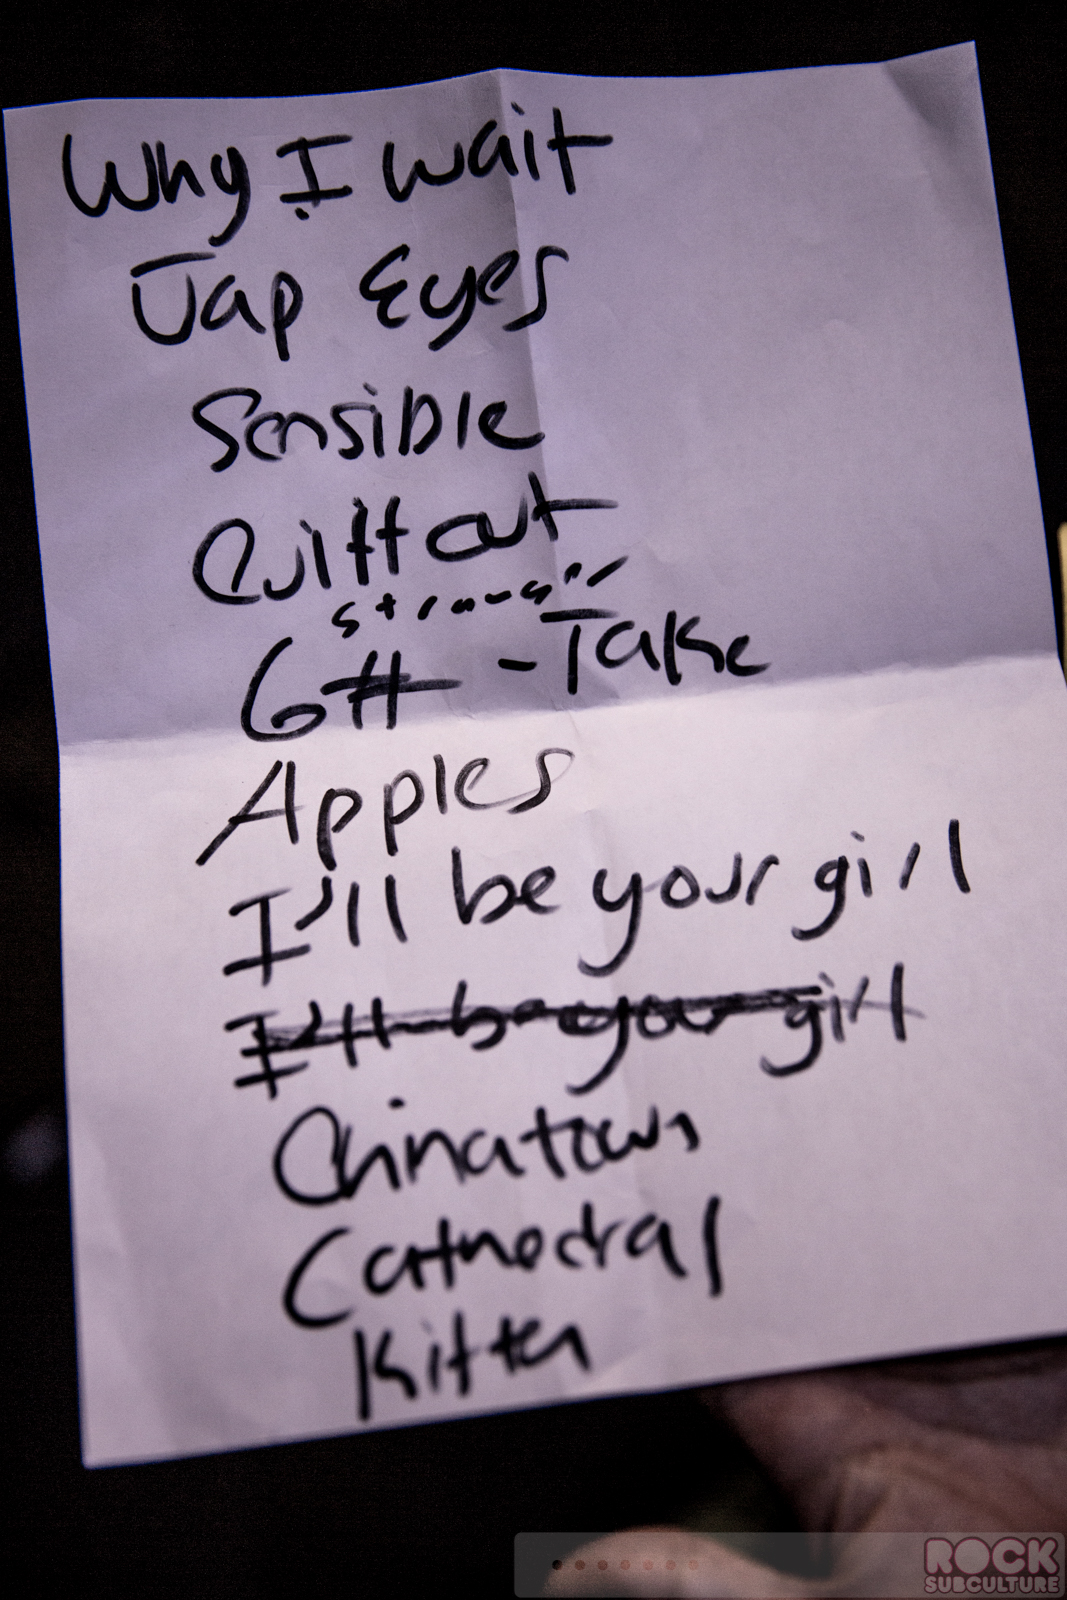 Why I wait
Jap Eyes
Sensible
Quitt out
stranger
G# - Take
Apples
I'll be your girl
I'll be your girl
Chinatown
Cathedral
Kitten
ROCK
SUBCULTURE